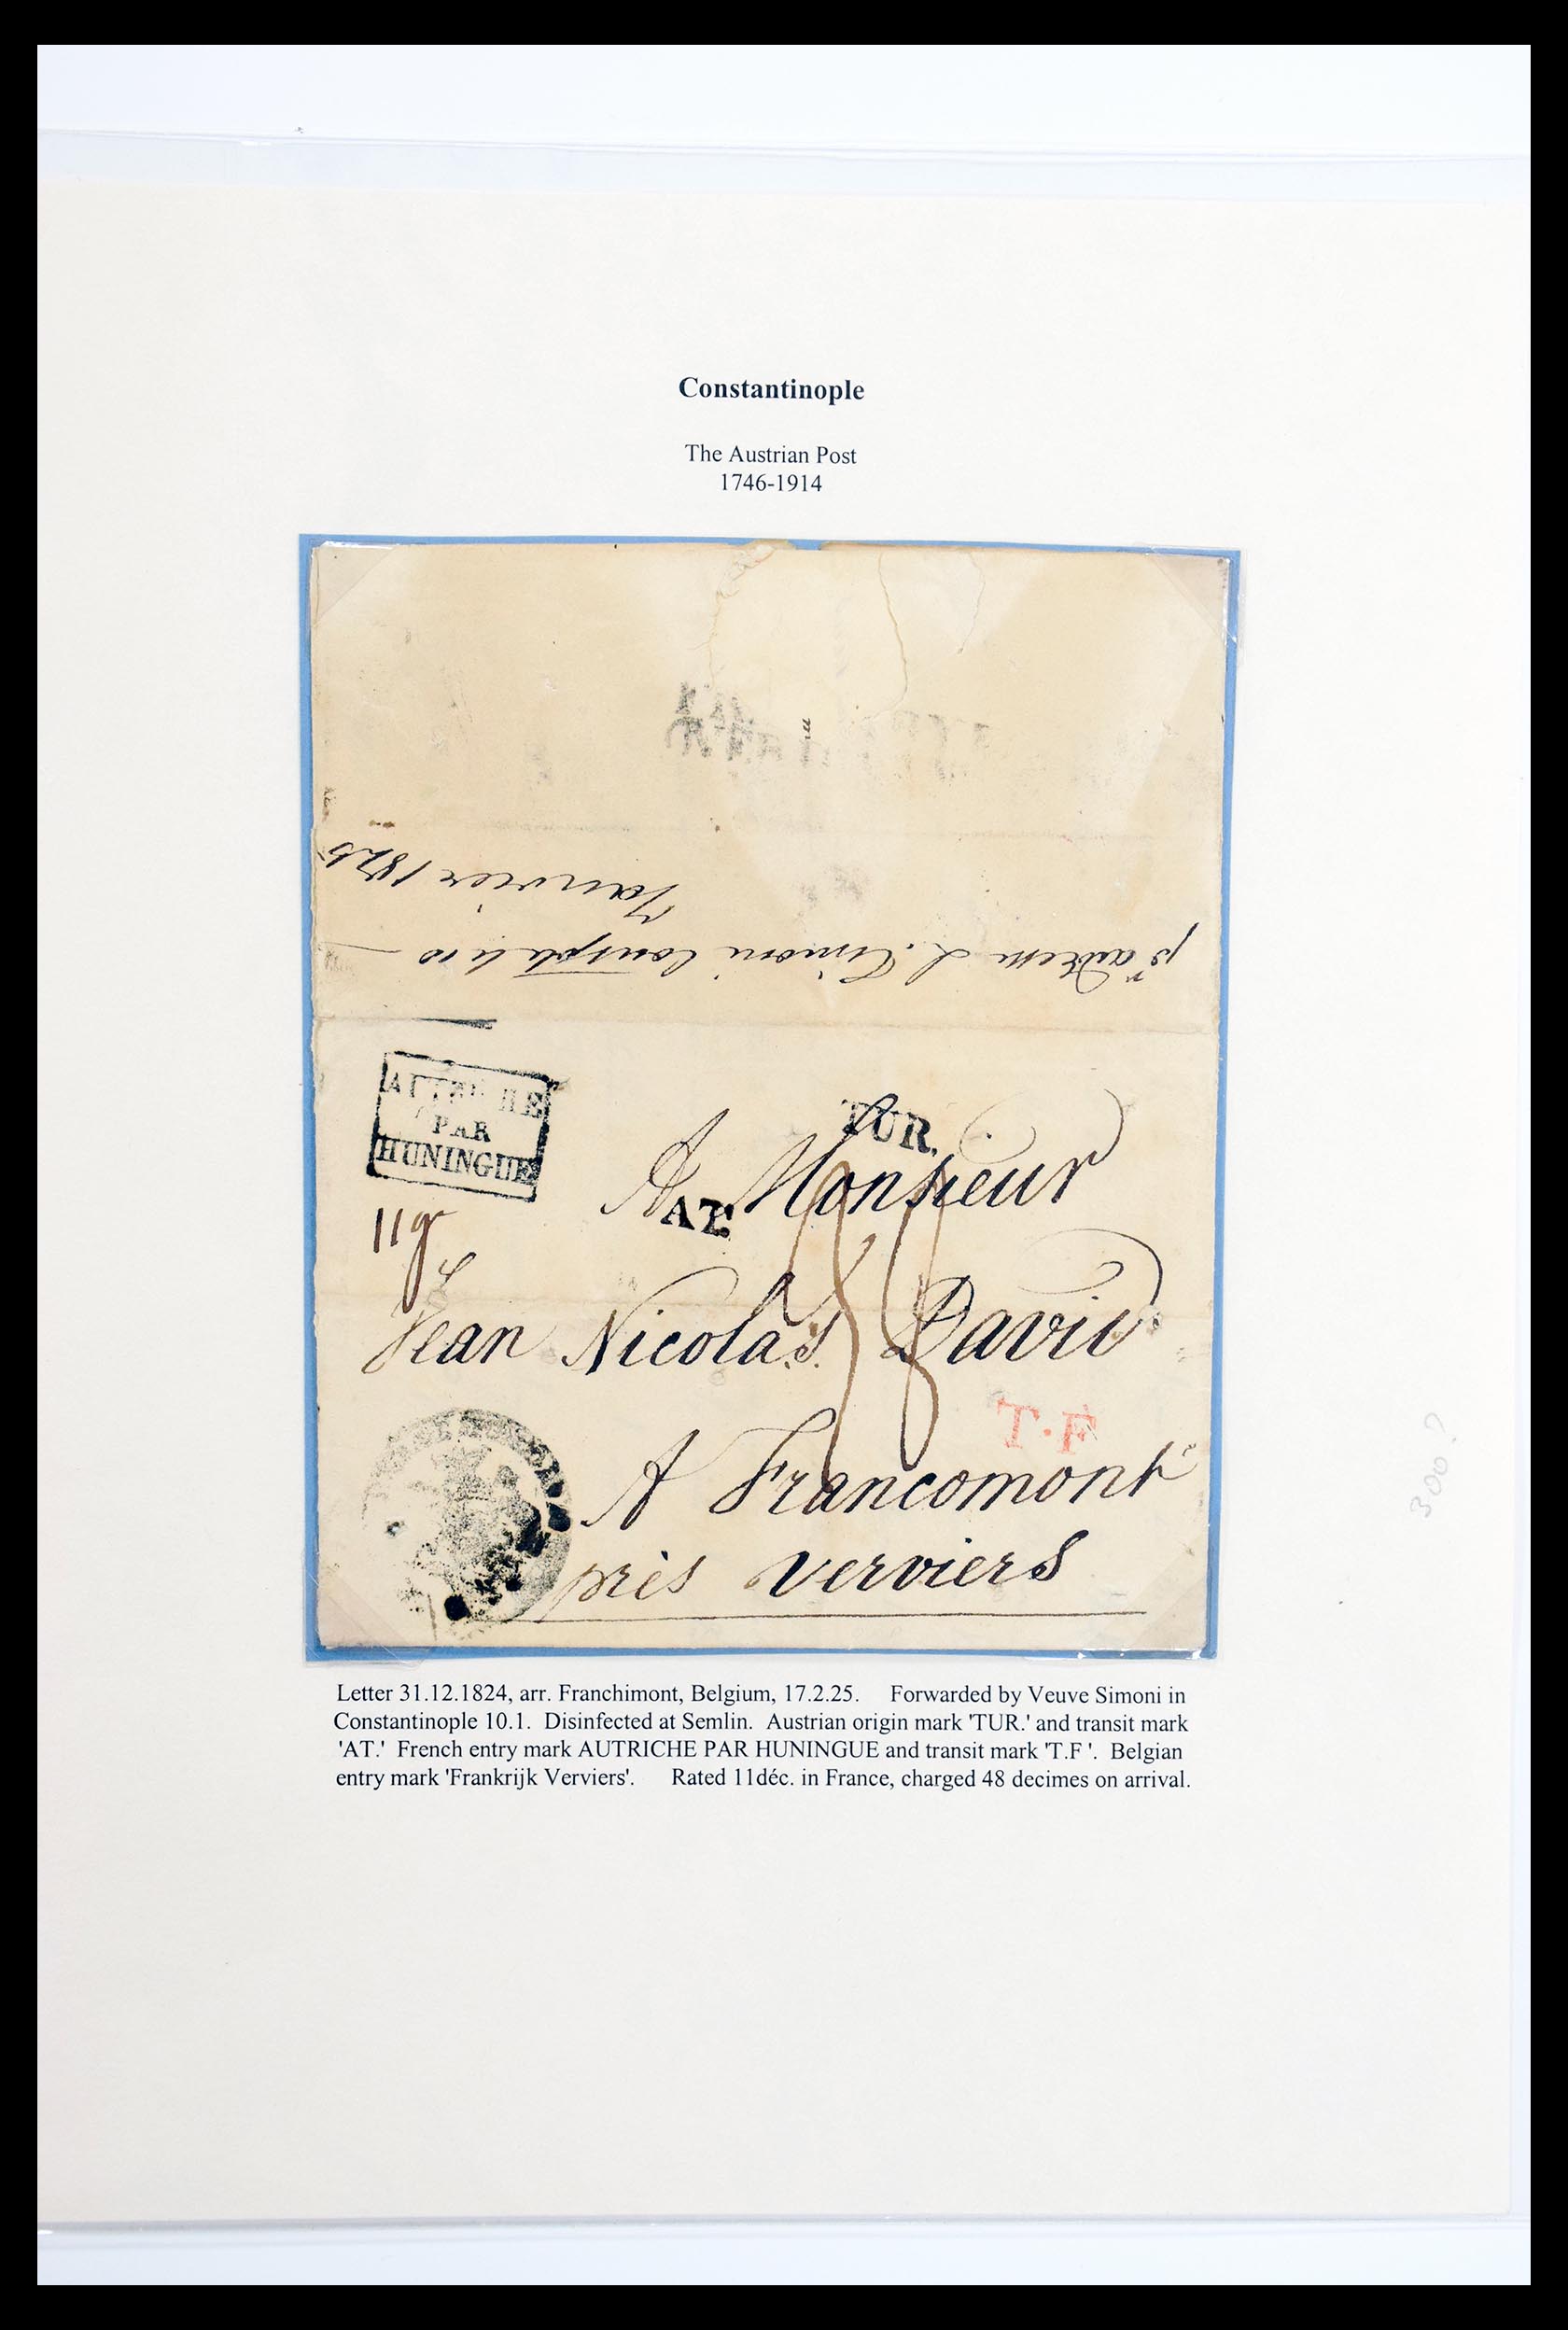 Constantinople
The Austrian Post
1746-1914
Janvier 1825
pr adresse
AUTRICHE
PAR
HUNINGUE
TUR.
A Monsieur
AT.
11
Jean Nicolas David
48
T.F
A Francomont
près Verviers
300?
Letter 31.12.1824, arr. Franchimont, Belgium, 17.2.25. Forwarded by Veuve Simoni in
Constantinople 10.1. Disinfected at Semlin. Austrian origin mark 'TUR.' and transit mark
'AT.' French entry mark AUTRICHE PAR HUNINGUE and transit mark 'T.F '. Belgian
entry mark 'Frankrijk Verviers'. Rated 11déc. in France, charged 48 decimes on arrival.